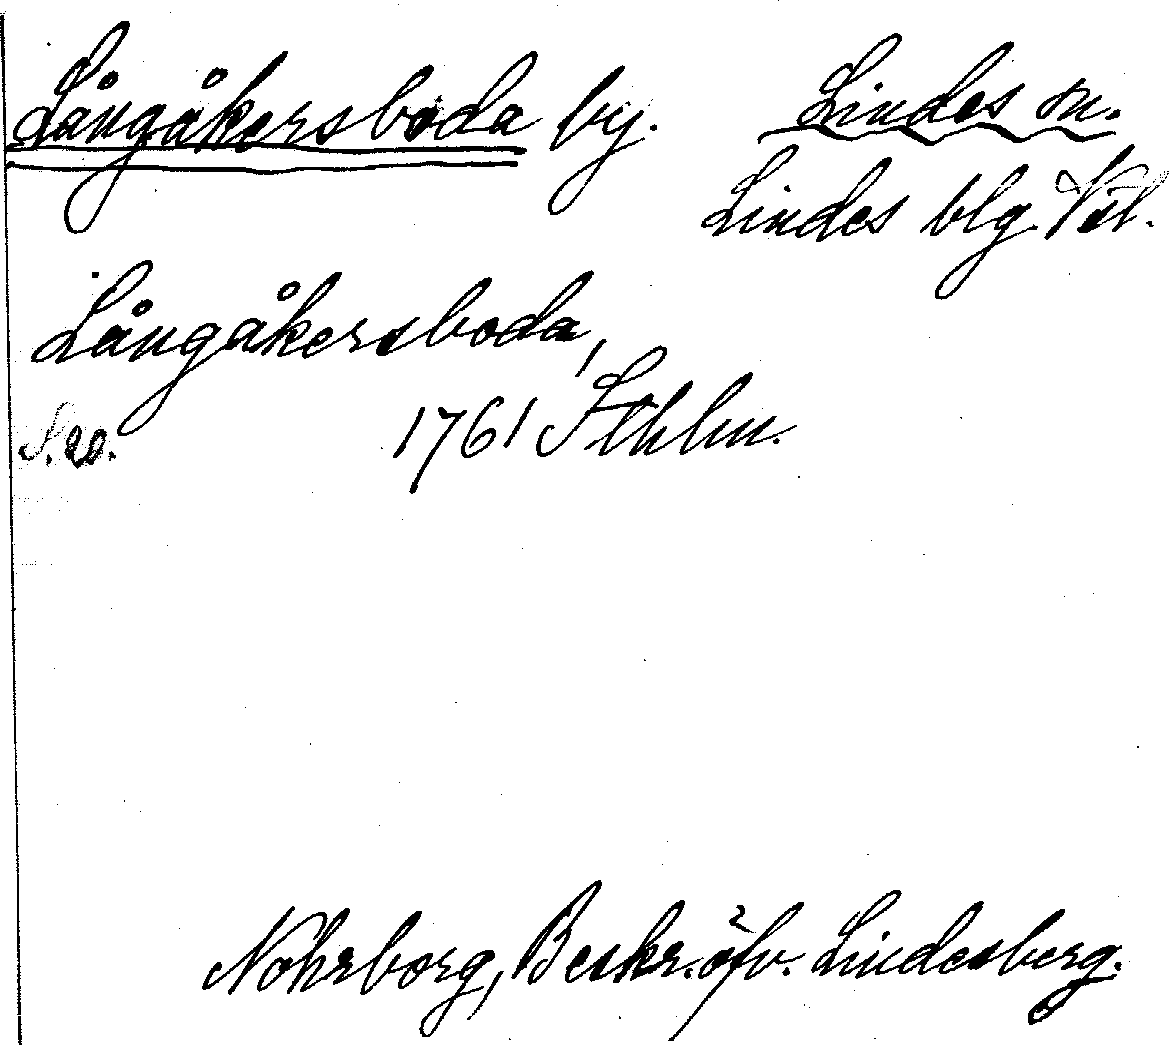 Långåkersboda by. Lindes sn.
Lindes blg. Vstl.
Långåkersboda,
S. 20. 1761 Sthlm.
Nohrborg, Beskr. öfv. Lindesberg.